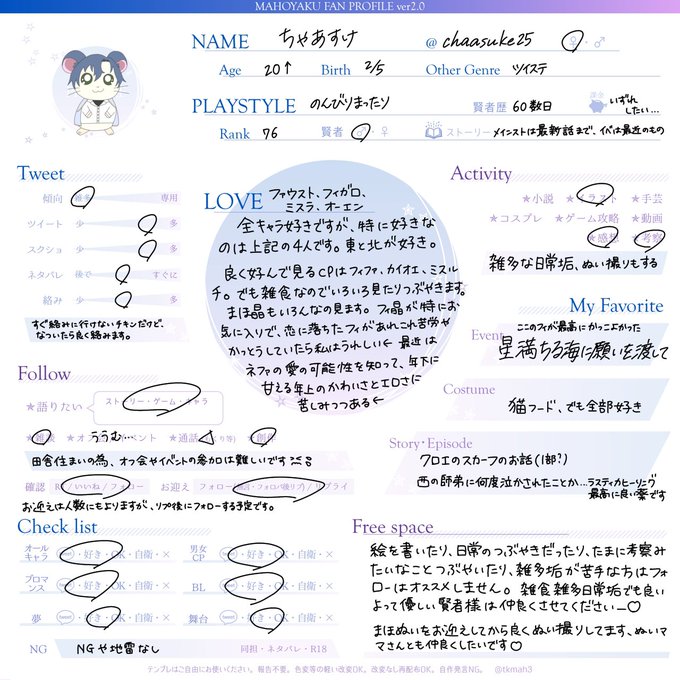 MAHOYAKU FAN PROFILE ver2.0
NAME ちゃあすけ @chaasuke25 ♀・♂
Age 20↑ Birth 2/5 Other Genre ツイステ
PLAYSTYLE のんびりまったり 賢者歴 60数日 課金 いずれしたい…
Rank 76 賢者 ♂・♀ ストーリー メインストは最新話まで、イベは最近のもの
Tweet
傾向 雑多 専用
ツイート 少 多
スクショ 少 多
ネタバレ 後で すぐに
絡み 少 多
すぐ絡みに行けないチキンだけど、
なついたら良く絡みます。
LOVE ファウスト、フィガロ、
ミスラ、オーエン
全キャラ好きですが、特に好きな
のは上記の4人です。東と北が好き。
良く好んで見るCPはフィファ、カイオエ、ミスル
チ。でも雑食なのでいろいろ見たりつぶやきます。
まほ晶もいろんなの見ます。フィ晶が特にお
気に入りで、恋に落ちたフィがあれこれ苦労や
かっとうしていたら私はうれしい← 最近は
ネファの愛の可能性を知って、年下に
甘える年上のかわいさとエロさに
苦しみつつある←
Activity
★小説 ★イラスト ★手芸
★コスプレ ★ゲーム攻略 ★動画
★感想 ★考察
雑多な日常垢、ぬい撮りもする
My Favorite
ここのフィが最高にかっこよかった
Event 星満ちる海に願いを渡して
Costume
猫フード、でも全部好き
Story・Episode
クロエのスカーフのお話(1部?)
西の師弟に何度泣かされたことか…ラスティカヒーリング
最高に良い薬です
Follow
★語りたい ストーリー・ゲーム・キャラ
★雑談 ★オフ会・イベント ★通話 ★創作
ううむ…
田舎住まいの為、オフ会やイベントの参加は難しいです
確認 RT / いいね / フォロー お迎え フォロー / リプライ
お迎えは人数にもよりますが、リプ後にフォローする予定です。
Check list
オールキャラ ・好き・OK・自衛・×
男女CP ・好き・OK・自衛・×
ブロマンス ・好き・OK・自衛・×
BL ・好き・OK・自衛・×
夢 ・好き・OK・自衛・×
舞台 ・好き・OK・自衛・×
NG NGや地雷なし 同担・ネタバレ・R18
Free space
絵を書いたり、日常のつぶやきだったり、たまに考察み
たいなことつぶやいたり、雑多垢が苦手な方はフォ
ローはオススメしません。 雑食雑多日常垢でも良い
よって優しい賢者様は仲良くさせてくださいー♡
まほぬいをお迎えしてから良くぬい撮りしてます、ぬいマ
マさんとも仲良くしたいです♡
テンプレはご自由にお使いください。報告不要。色変等の軽い改変OK。改変なし再配布OK。自作発言NG。 @tkmah3